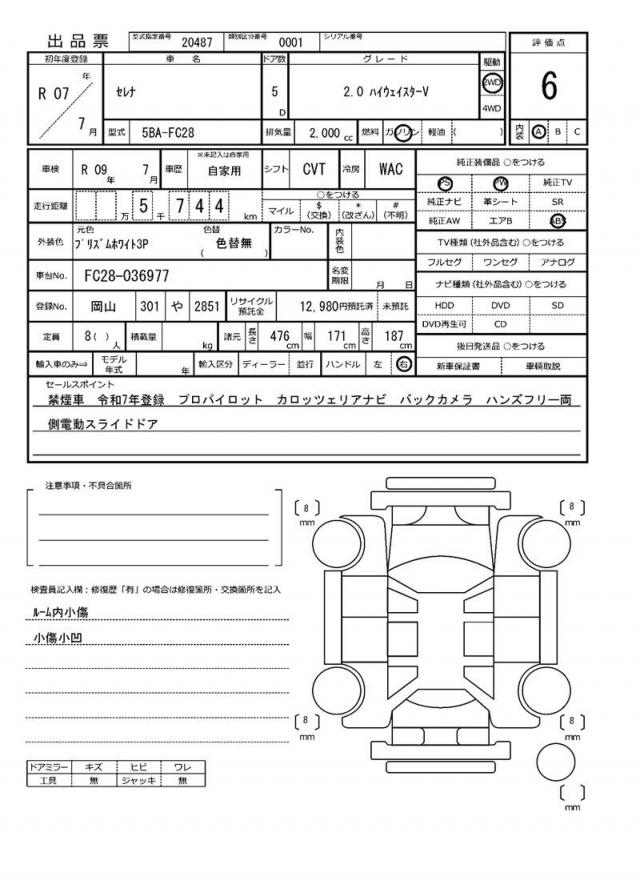 出品票 型式指定番号 20487 類別区分番号 0001 シリアル番号
評価点
6
内装 A B C
初年度登録 車名 ドア数 グレード 駆動
R 07 年 7 月 セレナ 5 D 2.0 ハイウェイスターV 2WD 4WD
型式 5BA-FC28 排気量 2,000 cc 燃料 ガソリン 軽油 ( )
車検 R 09 年 7 月 車歴 ※未記入は自家用 自家用 シフト CVT 冷房 WAC
走行距離 万 5 千 7 4 4 km ○をつける
マイル $(交換) *(改ざん) #(不明)
外装色 元色 プリズムホワイト3P 色替 ( 色替無 ) カラーNo. 内装色
車台No. FC28-036977 名変期限 月 日
登録No. 岡山 301 や 2851 リサイクル預託金 12,980円預託済 未預託
定員 8( )人 積載量 kg 諸元 長さ 476 cm 幅 171 cm 高さ 187 cm
輸入車のみ⇒ モデル年式 年 輸入区分 ディーラー 並行 ハンドル 左 右
純正装備品 ○をつける
PS PW 純正TV
純正ナビ 革シート SR
純正AW エアB ABS
TV種類(社外品含む) ○をつける
フルセグ ワンセグ アナログ
ナビ種類(社外品含む) ○をつける
HDD DVD SD
DVD再生可 CD
後日発送品 ○をつける
新車保証書 車輌取説
セールスポイント
禁煙車 令和7年登録 プロパイロット カロッツェリアナビ バックカメラ ハンズフリー両
側電動スライドドア
注意事項・不具合箇所
検査員記入欄:修復歴「有」の場合は修復箇所・交換箇所を記入
ルーム内小傷
小傷小凹
ドアミラー キズ ヒビ ワレ
工具 無 ジャッキ 無
[ 8 ] mm
[ 8 ] mm
[ 8 ] mm
[ 8 ] mm
[ ] mm